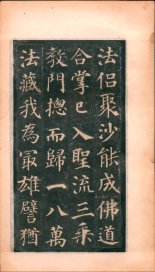 法侣聚沙能成佛道
合掌已入聖流三乘
教門揔而歸一八萬
法藏我為冣雄譬猶